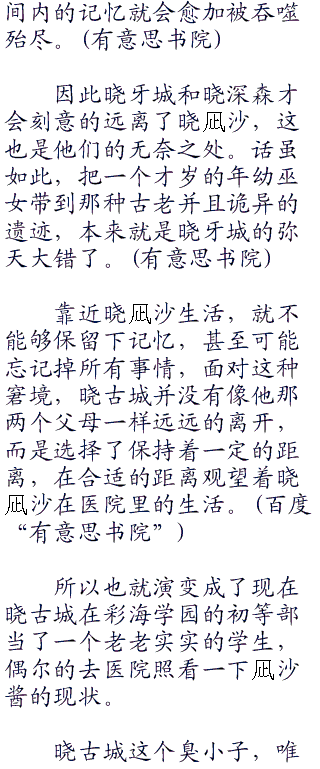 间内的记忆就会愈加被吞噬
殆尽。(有意思书院)
因此晓牙城和晓深森才
会刻意的远离了晓凪沙，这
也是他们的无奈之处。话虽
如此，把一个才岁的年幼巫
女带到那种古老并且诡异的
遗迹，本来就是晓牙城的弥
天大错了。(有意思书院)
靠近晓凪沙生活，就不
能够保留下记忆，甚至可能
忘记掉所有事情，面对这种
窘境，晓古城并没有像他那
两个父母一样远远的离开，
而是选择了保持着一定的距
离，在合适的距离观望着晓
凪沙在医院里的生活。(百度
“有意思书院”)
所以也就演变成了现在
晓古城在彩海学园的初等部
当了一个老老实实的学生，
偶尔的去医院照看一下凪沙
酱的现状。
晓古城这个臭小子，唯